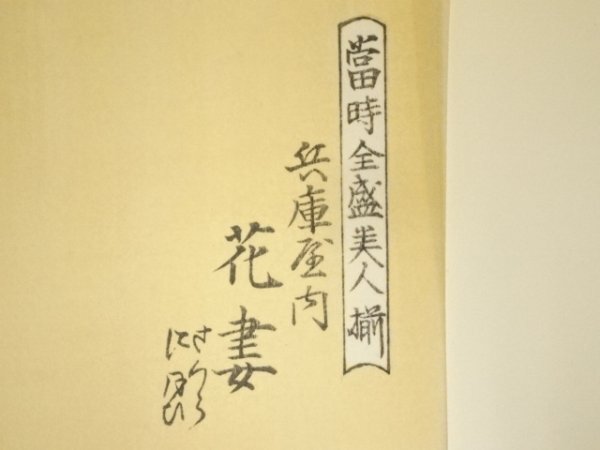 當時全盛美人揃
兵庫屋内
花妻